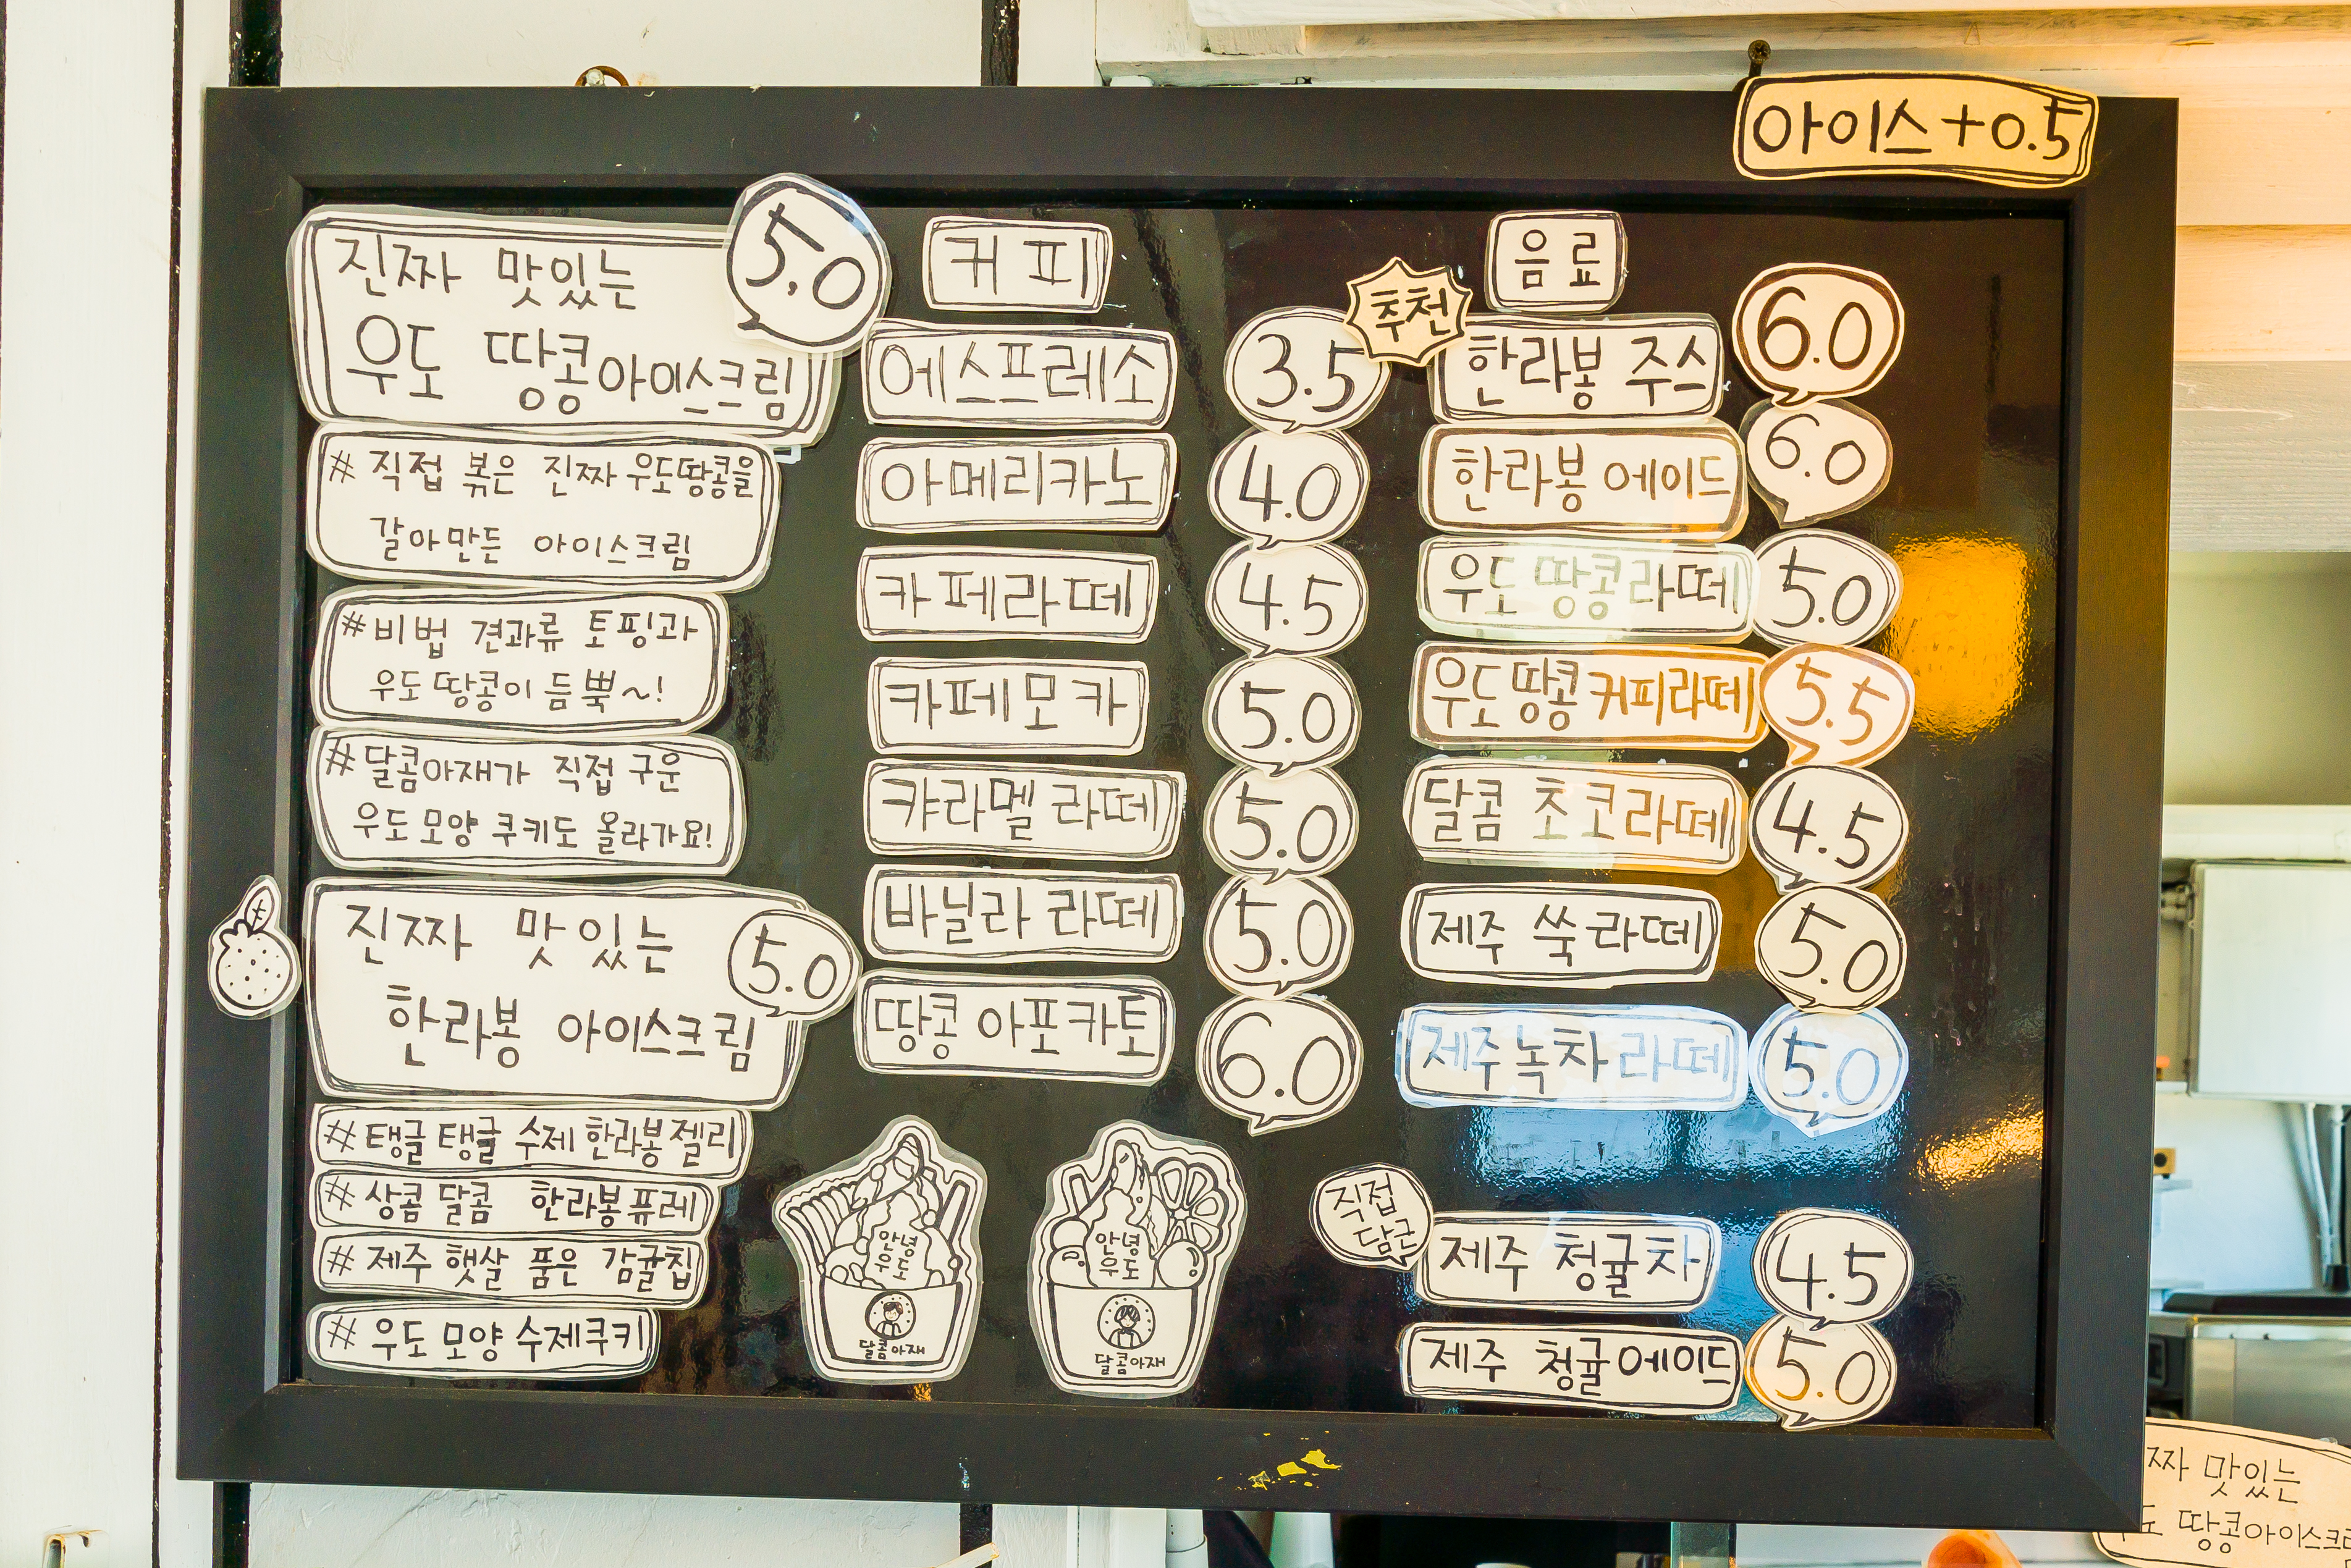 아이스+0.5
진짜 맛있는
우도 땅콩아이스크림
5.0
# 직접 볶은 진짜 우도땅콩을
갈아만든 아이스크림
# 비법 견과류 토핑과
우도땅콩이 듬뿍~!
# 달콤아재가 직접 구운
우도모양 쿠키도 올라가요!
진짜 맛있는
한라봉 아이스크림
5.0
# 탱글탱글 수제 한라봉젤리
# 상콤 달콤 한라봉퓨레
# 제주 햇살 품은 감귤칩
# 우도모양 수제쿠키
커피
에스프레소 3.5
아메리카노 4.0
카페라떼 4.5
카페모카 5.0
캬라멜 라떼 5.0
바닐라 라떼 5.0
땅콩 아포카토 6.0
안녕
우도
달콤아재
안녕
우도
달콤아재
음료
추천
한라봉 주스 6.0
한라봉 에이드 6.0
우도 땅콩라떼 5.0
우도땅콩커피라떼 5.5
달콤 초코라떼 4.5
제주 쑥라떼 5.0
제주녹차라떼 5.0
직접
담근
제주 청귤차 4.5
제주 청귤에이드 5.0
짜 맛있는
도 땅콩아이스크